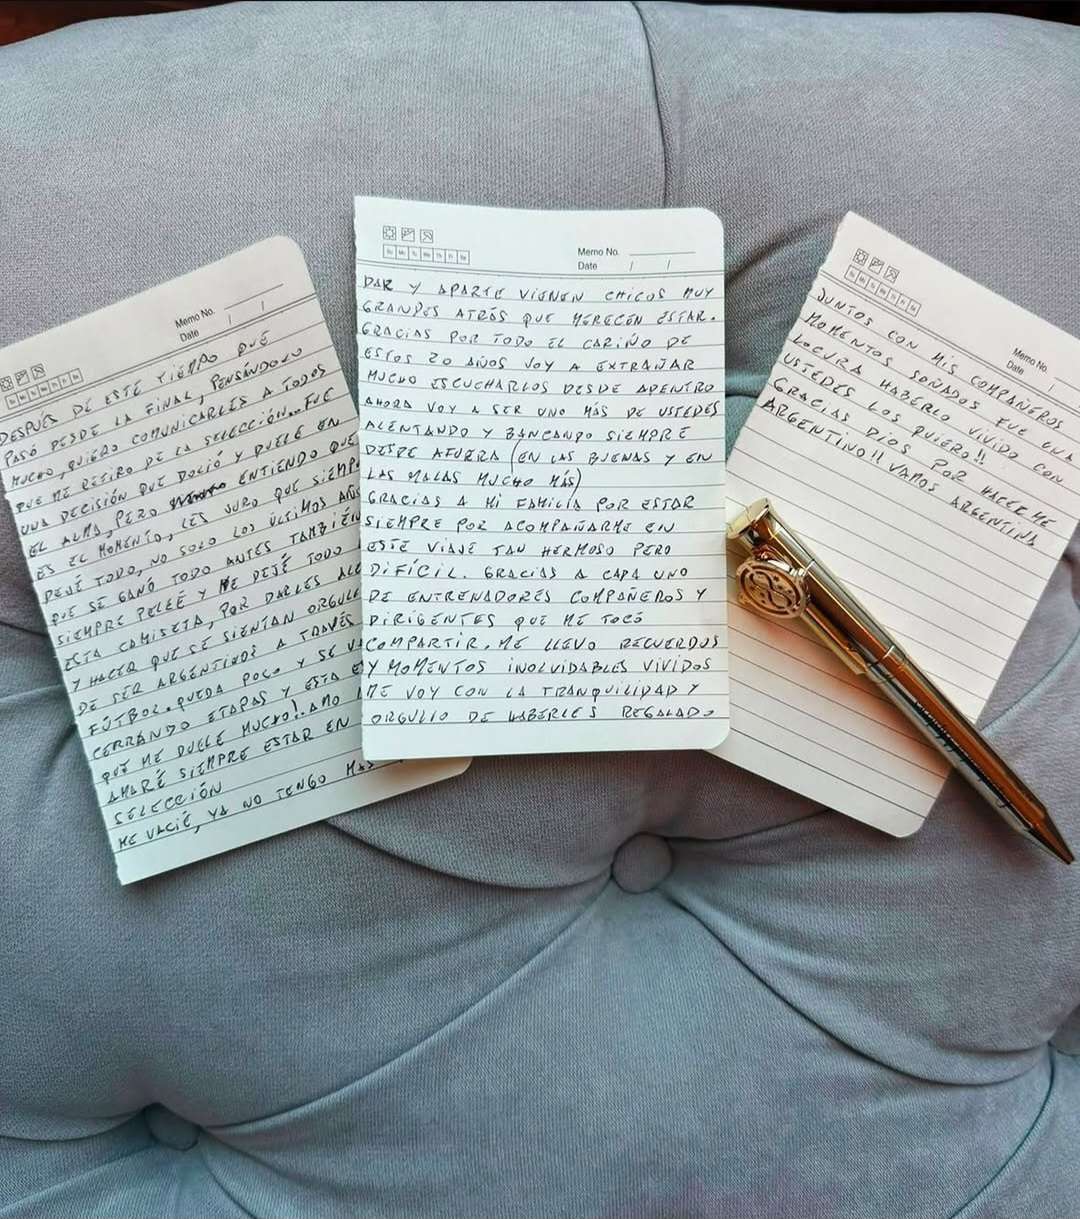 Memo No.
Date / /
DESPUÉS DE ESTE TIEMPO QUE
PASÓ DESDE LA FINAL, PENSANDOLO
MUCHO, QUIERO COMUNICARLES A TODOS
QUE ME RETIRO DE LA SELECCIÓN... FUE
UNA DECISIÓN QUE DOLIÓ Y DUELE EN
EL ALMA, PERO ENTIENDO QUE
ES EL MOMENTO, LES JURO QUE SIEMP
DEJÉ TODO, NO SOLO LOS ÚLTIMOS AÑOS
QUE SE GANÓ TODO ANTES TAMBIÉN
SIEMPRE PELEÉ Y ME DEJÉ TODO
ESTA CAMISETA, POR DARLES ALE
Y HACER QUE SE SIENTAN ORGULL
DE SER ARGENTINOS A TRAVÉS
FÚTBOL. QUEDA POCO Y SE VA
CERRANDO ETAPAS Y ESTA E
QUE ME DUELE MUCHO!. AMO
AMARÉ SIEMPRE ESTAR EN
SELECCIÓN
ME VACIÉ, YA NO TENGO MAS
Su Mo Tu We Th Fr Sa
Memo No.
Date / /
DAR Y APARTE VIENEN CHICOS MUY
GRANDES ATRÁS QUE MERECEN ESTAR.
GRACIAS POR TODO EL CARIÑO DE
ESTOS 20 AÑOS VOY A EXTRAÑAR
MUCHO ESCUCHARLOS DESDE ADENTRO
AHORA VOY A SER UNO MÁS DE USTEDES
ALENTANDO Y BANCANDO SIEMPRE
DESDE AFUERA (EN LAS BUENAS Y EN
LAS MALAS MUCHO MÁS)
GRACIAS A MI FAMILIA POR ESTAR
SIEMPRE POR ACOMPAÑARME EN
ESTE VIAJE TAN HERMOSO PERO
DIFÍCIL. GRACIAS A CADA UNO
DE ENTRENADORES COMPAÑEROS Y
DIRIGENTES QUE ME TOCÓ
COMPARTIR. ME LLEVO RECUERDOS
Y MOMENTOS INOLVIDABLES VIVIDOS
ME VOY CON LA TRANQUILIDAD Y
ORGULLO DE HABERLES REGALADO
Memo No.
Date /
JUNTOS CON MIS COMPAÑEROS
MOMENTOS SOÑADOS FUE UNA
LOCURA HABERLO VIVIDO CON
USTEDES LOS QUIERO!!
GRACIAS DIOS POR HACERME
ARGENTINO!! VAMOS ARGENTINA